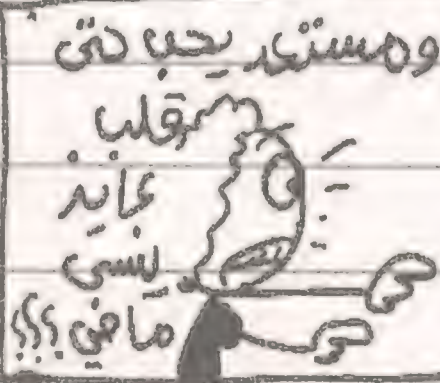 ومستعد يحب حتى
بقلب
عايز
ينسى
ماضي؟؟؟